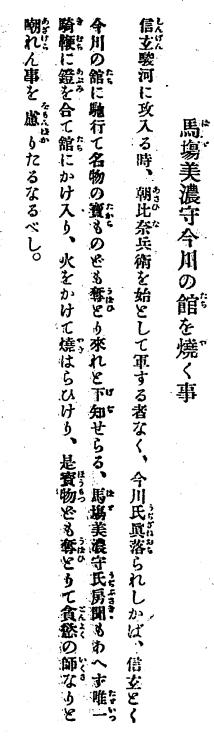 馬塲美濃守今川の館を燒く事
信玄駿河に攻入る時、朝比奈兵衛を始として軍する者なく、今川氏眞落られしかば、信玄とく
今川の館に馳行て名物の寶ものども奪とり來れと下知せらる、馬塲美濃守氏房聞もあへず唯一
騎鞭に鐙を合て館にかけ入り、火をかけて燒はらひけり、是寳物ども奪とりて貪慾の師なりと
嘲れん事を慮りたるなるべし。